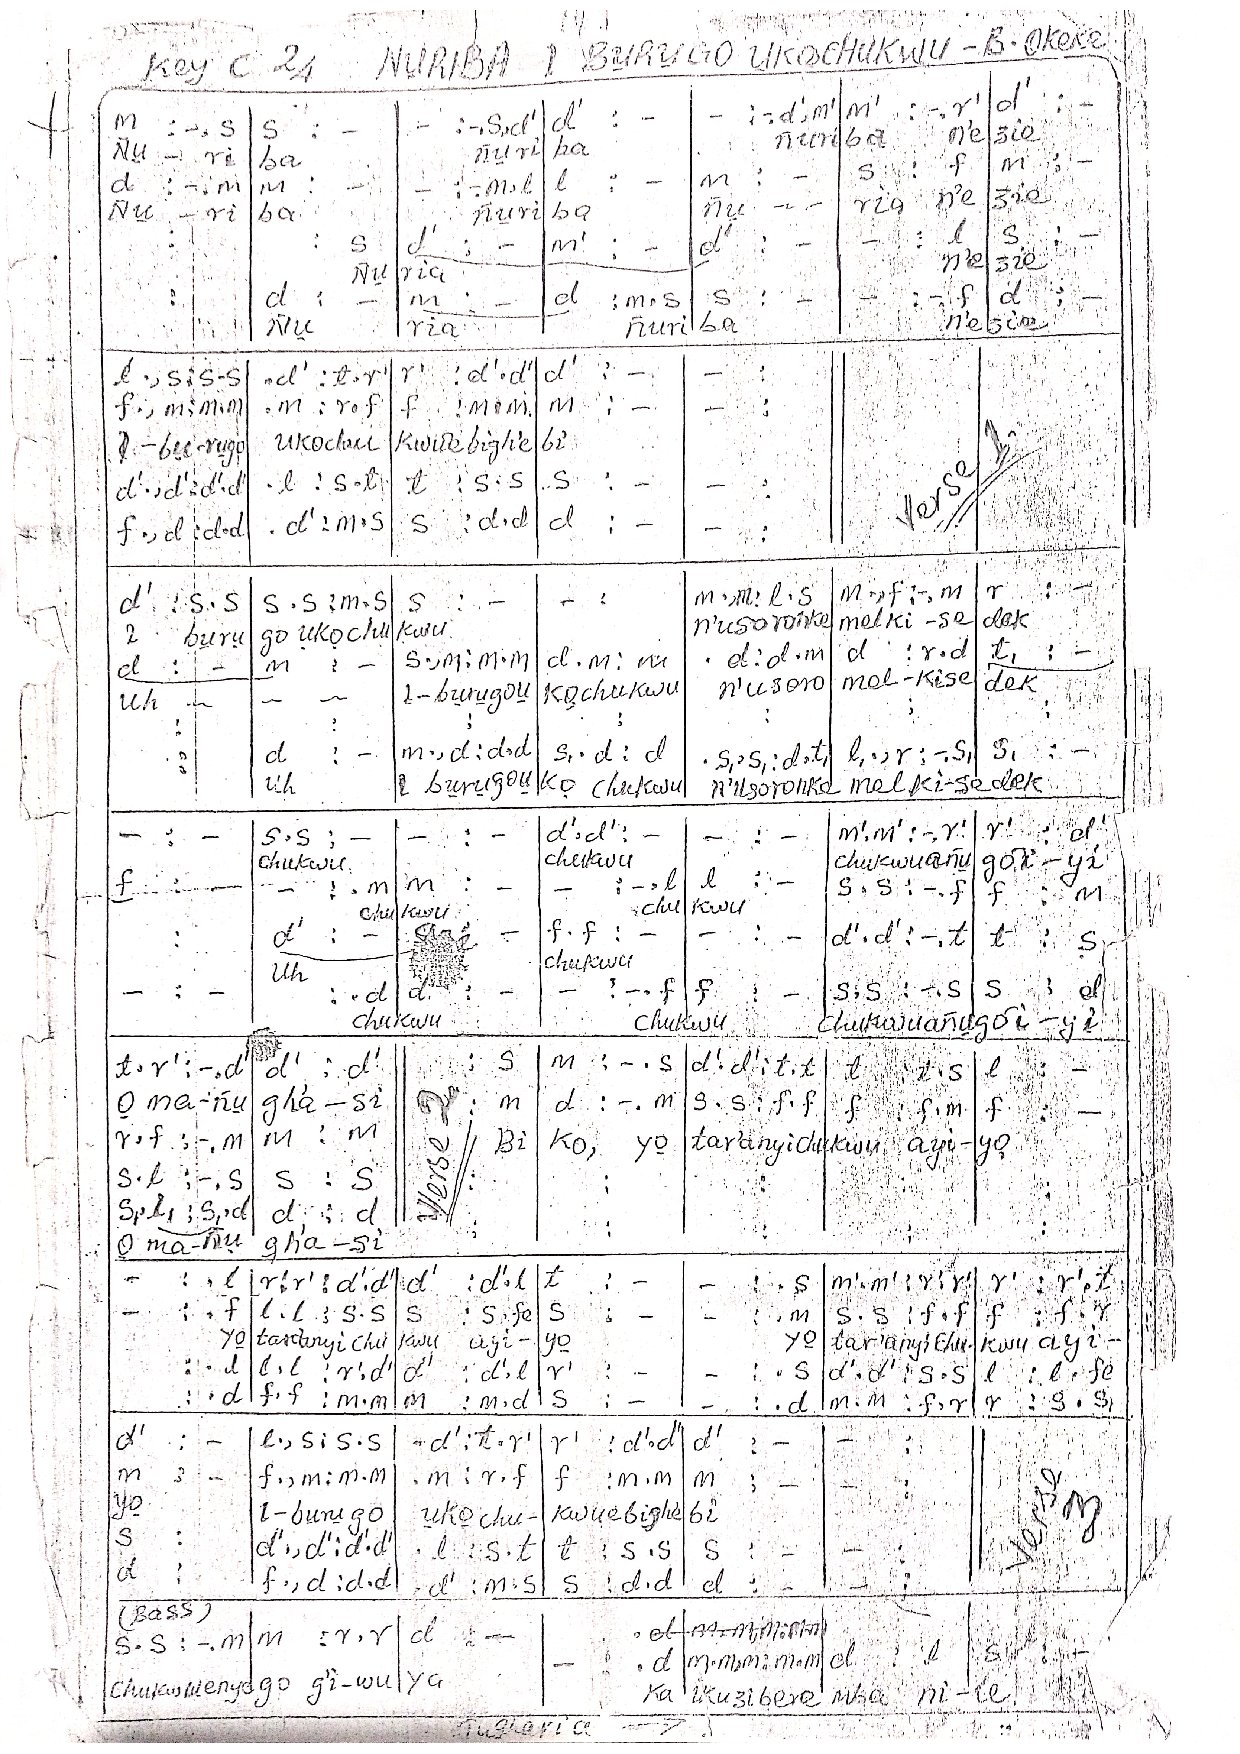 Key C 2/4 NURIBA I BURUGO UKOCHUKWU - B. Okeke
m : -.,s | s : - | - : -.,s.,d' | d' : - | - : -.d',m' | m' : -.,r' | d' : -
Ñu - ri ba ñuri ba ñuri ba n'e zie
d : -.,m | m : - | - : -.m.l | l : - | m : - | s : f | m : -
Ñu - ri ba ñuri ba ñu - - ria n'e zie
: | : s | d' : - | m' : - | d' : - | - : l | s : -
Ñu ria n'e zie
: | d : - | m : - | d : m.s | s : - | - : -.f | d : -
Ñu ria ñuri ba n'e zie
l .,s : s.s | .d' : t.r' | r' : d'.d' | d' : - | - :
f .,m : m.m | .m : r.f | f : m.m | m : - | - :
I - bu-rugo ukochu kwu'ebighe bi
d'.,d' : d'.d' | .l : s.t | t : s.s | s : - | - :
f .,d : d.d | .d' : m.s | s : d.d | d : - | - :
Verse 1.
d' : s.s | s.s : m.s | s : - | - : | m.,m : l.s | m.,f : -.,m | r : -
I buru go ukochu kwu n'usoronke melki - se dek
d : - | m : - | s.,m : m.m | d.m : m | .d : d.m | d : r.d | t, : -
Uh - - - I - burugou kochukwu n'usoro mel - kise dek
: | : | : | : | : | : | :
: | d : - | m.,d : d.d | s,.d : d | .s,.s, : d.t, | l,.,r : -.s, | s, : -
Uh I burugou ko chukwu n'usoronke melki-se dek
- : - | s.s : - | - : - | d'.d' : - | - : - | m'.m' : -.,r' | r' : d'
chukwu chukwu chukwuañu gói - yi
f : - | - : .m | m : - | - : -.,l | l : - | s.s : -.,f | f : m
chu kwu chu kwu
: | d' : - | : - | f.f : - | - : - | d'.d' : -.,t | t : s
Uh chukwu
- : - | : .d | d : - | - : -.,f | f : - | s.s : -.,s | s : d
chukwu chukwu chukwuañugói - yi
t.r' : -.,d' | d' : d' | : s | m : -.s | d'.d' : t.t | t : t.s | l : -
O ma-ñu gha - si : m | d : -.m | s.s : f.f | f : f.m | f : -
r.f : -.,m | m : m Bi ko, yo tar'anyichukwu ayi-yo
s.l : -.,s | s : s | : | : | : | : | :
s,.l, : s,.d | d : d | : | : | : | : | :
O ma-ñu gha - si
Verse 2
- : .l | r'.r' : d'.d' | d' : d'.l | t : - | - : .s | m'.m' : r'.r' | r' : r'.t
- : .f | l.l : s.s | s : s.fe | s : - | - : .m | s.s : f.f | f : f.r
yo tar'anyichu kwu ayi - yo yo tar'anyichu kwu ayi -
: .l | l.l : r'.d' | d' : d'.l | r' : - | - : .s | d'.d' : s.s | l : l.fe
: .d | f.f : m.m | m : m.d | s : - | - : .d | m.m : f.r | r : s.s,
d' : - | l.,s : s.s | .d' : t.r' | r' : d'.d' | d' : - | - :
m : - | f.,m : m.m | .m : r.f | f : m.m | m : - | - :
yo I - buru go ukochu - kwuebighe bi
s : | d'.,d' : d'.d' | .l : s.t | t : s.s | s : - | - :
d : | f.,d : d.d | .d' : m.s | s : d.d | d : - | - :
Verse 3
(Bass)
s.s : -.,m | m : r.r | d : - | - : .d | m.m,m : m.m | d : l | s : -
chukwuenyego g'i-wu ya ka ikuzibere nha ni-ile